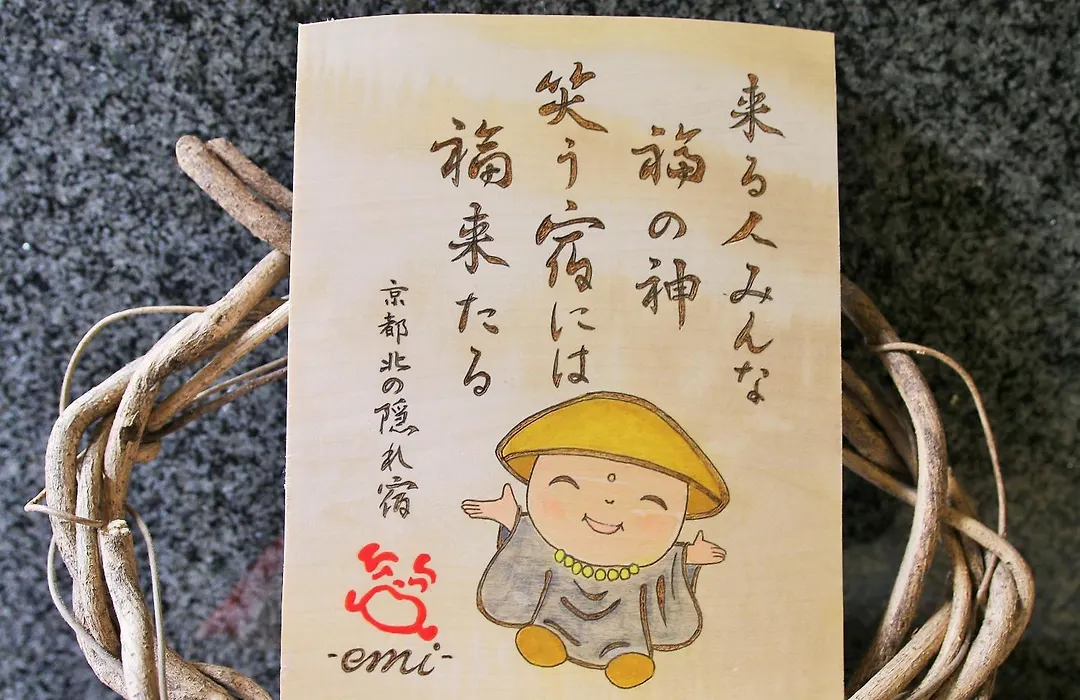 来る人みんな
福の神
笑う宿には
福来たる
京都北の隠れ宿
笑
-emi-